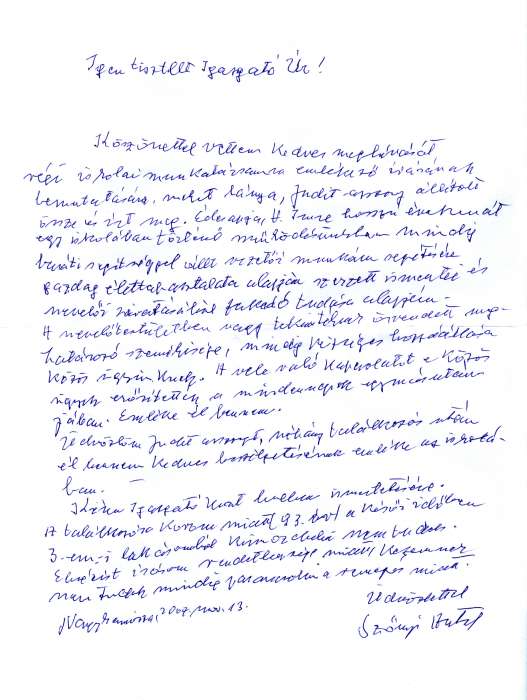 Igen tisztelt Igazgató Úr!
Köszönettel vettem kedves meghívását
régi iskolai munkatársamra emlékező írásának
bemutatására, melyet lánya, Judit asszony állított
össze és írt meg. Édesapja, H. Imre hosszú éveken át
egy iskolában történő működésünkben mindig
baráti segítséggel volt vezetői munkám segítésére
gazdag élettapasztalata alapján szerzett ismeretei és
nevelői
tudása alapján.
A nevelőtestületben nagy tekintélynek örvendett meg-
határozó személyisége, mindig készséges hozzáállása
közös ügyeinkhez. A vele való kapcsolatot a közös
ügyek erősítették a mindennapok egymásután-
jában. Emléke él bennem.
Üdvözlöm Judit asszonyt, néhány találkozás után
él bennem kedves beszélgetésének emléke az iskolá-
ban.
Kérem Igazgató Urat levelem ismertetésére.
A találkozóra korom miatt 93. évet a késői időben
3. em.-i lakásomból kimozdulni nem tudok.
Elnézést írásom rendetlensége miatt, kezemnek
nem tudok mindig parancsolni a
Üdvözlettel
Nagykanizsa, 2009. nov. 13.
Szőnyi Antal